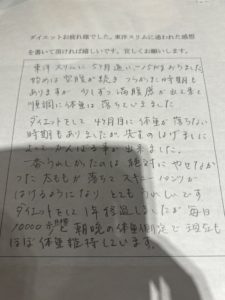 ダイエットお疲れ様でした。東洋スリムに通われた感想
を書いて頂ければ嬉しいです。宜しくお願いします。
東洋スリムに5ヶ月通い、15kgおちました
始めは空腹が続きつらかった時期も
ありますが 少しずつ満腹感が出て来て
順調に体重は落ちていきました
ダイエットをして4ヶ月目に体重が落ちない
時期もありましたが、先生のはげましに
よってがんばる事が出来ました。
一番うれしかったのは絶対にやせなか
った太ももが落ちてスキニーパンツが
はけるようになり とてもうれしいです
ダイエットをして1年経過しましたが 毎日
10000歩と朝晩の体重測定で現在も
ほぼ体重維持しています。